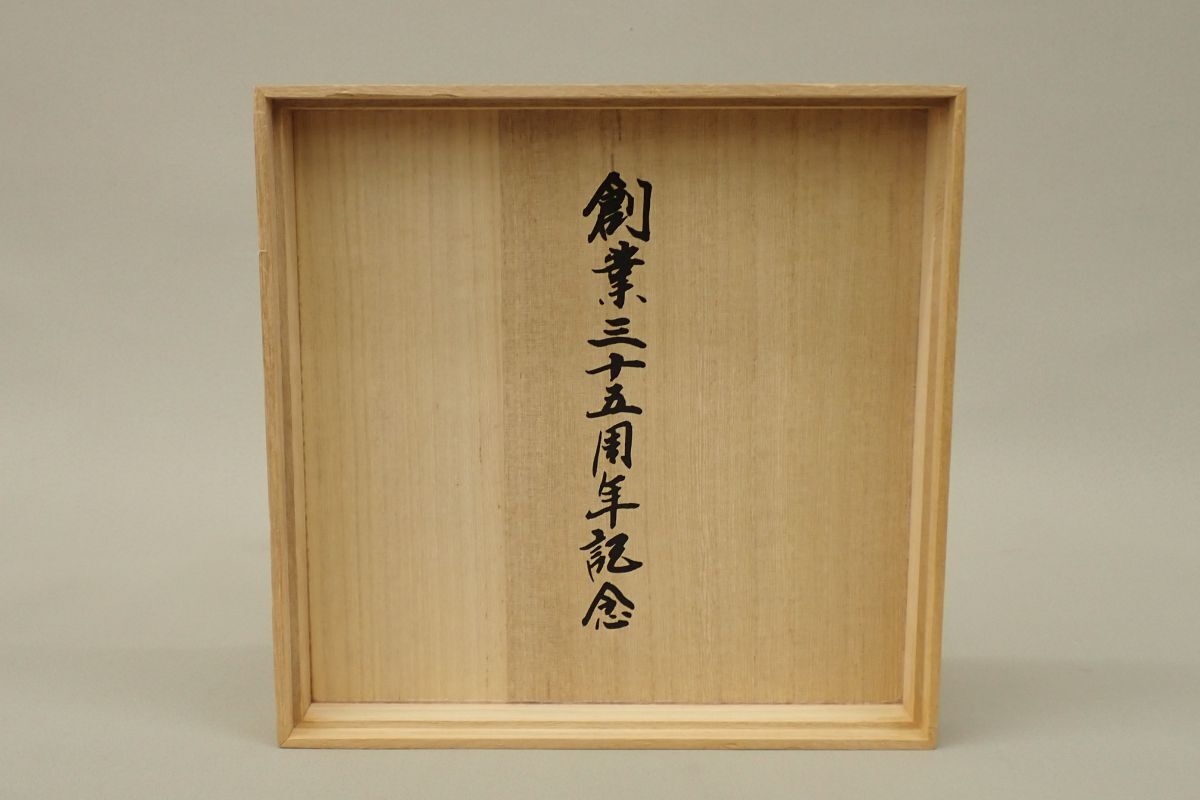 創業三十五周年記念